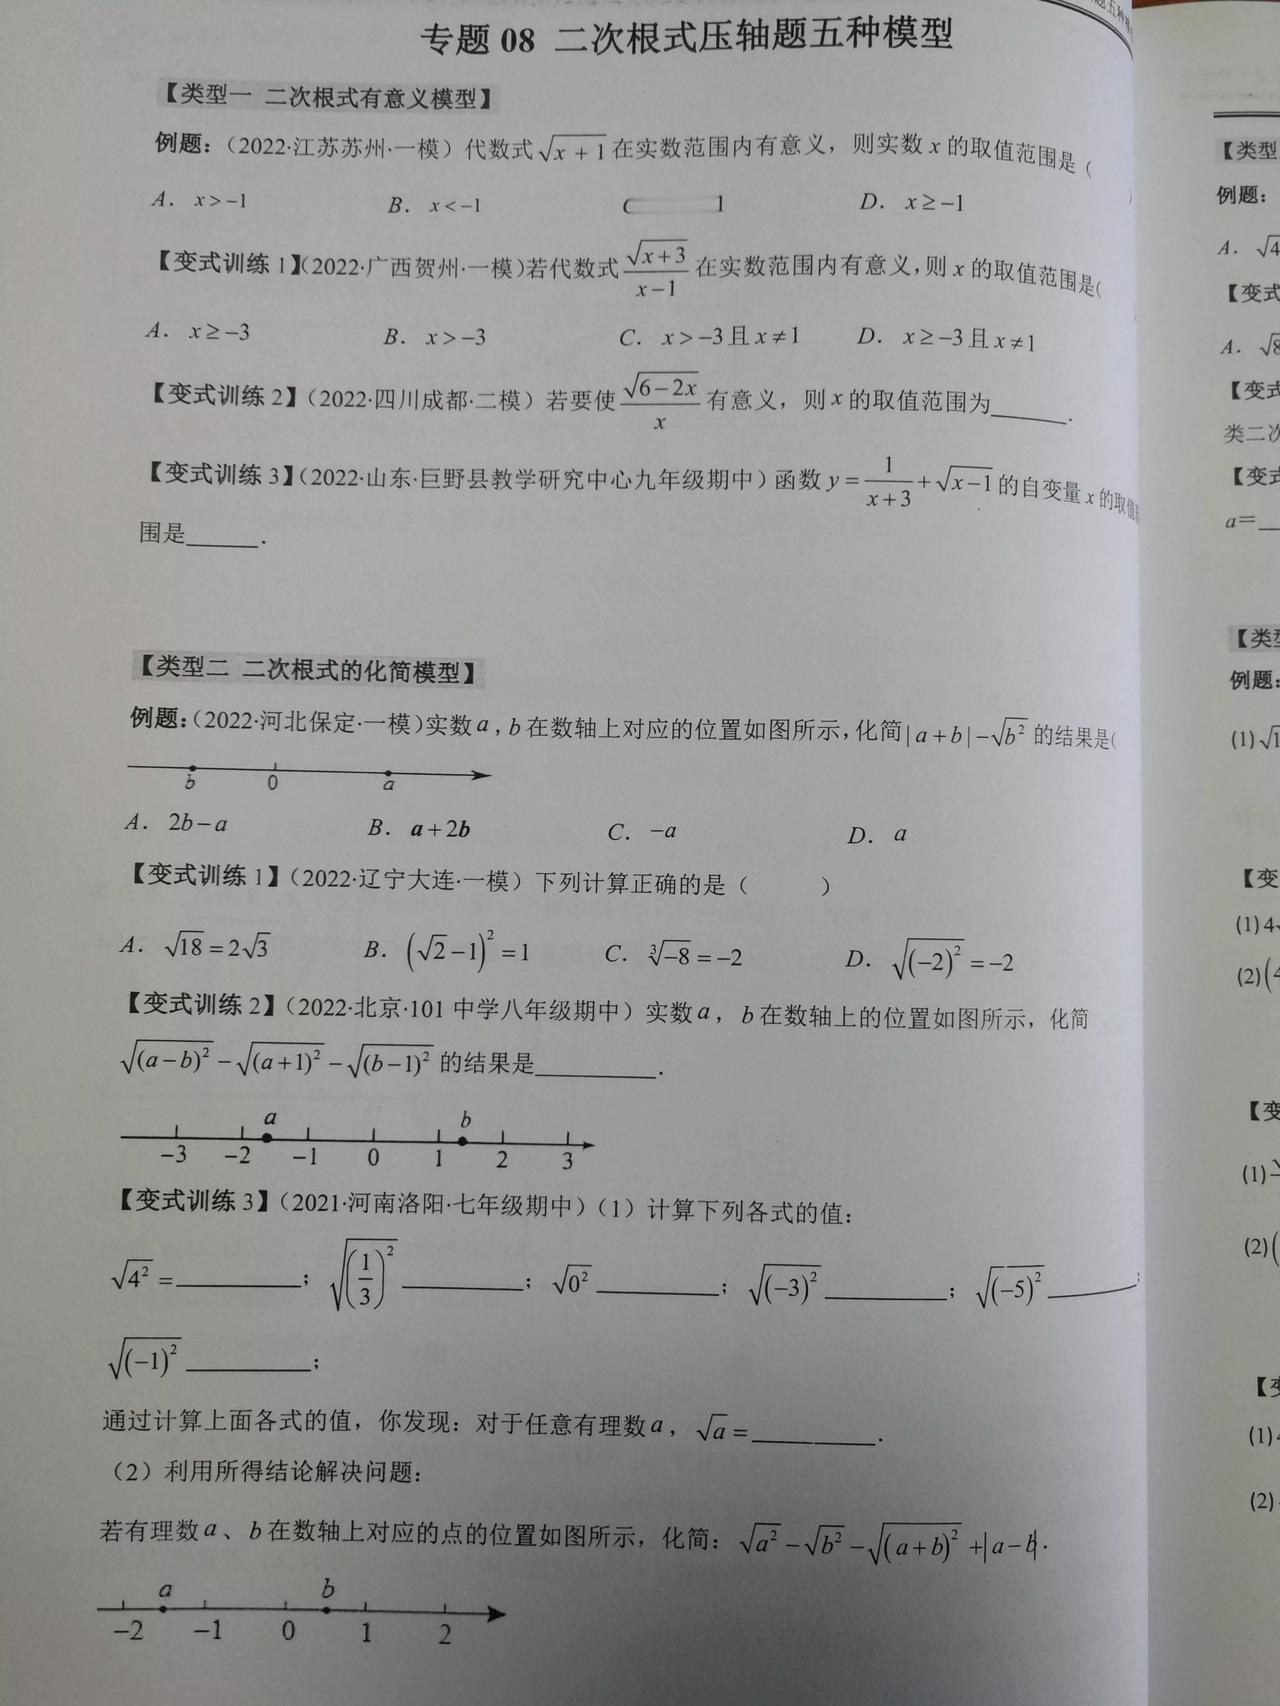 专题 08 二次根式压轴题五种模型
【类型一 二次根式有意义模型】
例题：（2022·江苏苏州·一模）代数式√(x+1)在实数范围内有意义，则实数 x 的取值范围是（
A． x>-1 B． x<-1 1 D． x≥-1
【变式训练 1】(2022·广西贺州·一模)若代数式 √(x+3)/(x-1) 在实数范围内有意义,则 x 的取值范围是(
A． x≥-3 B． x>-3 C． x>-3且x≠1 D． x≥-3且x≠1
【变式训练 2】（2022·四川成都·二模）若要使 √(6-2x)/x 有意义，则 x 的取值范围为______.
【变式训练 3】(2022·山东·巨野县教学研究中心九年级期中）函数 y=1/(x+3)+√(x-1) 的自变量 x 的取值
围是______.
【类型二 二次根式的化简模型】
例题：(2022·河北保定·一模)实数a,b在数轴上对应的位置如图所示,化简|a+b|-√(b²) 的结果是(
b 0 a
A． 2b-a B． a+2b C． -a D． a
【变式训练 1】（2022·辽宁大连·一模）下列计算正确的是（ ）
A． √18=2√3 B． (√2-1)²=1 C． ∛-8=-2 D． √((-2)²)=-2
【变式训练 2】（2022·北京·101 中学八年级期中）实数a，b在数轴上的位置如图所示，化简
√((a-b)²)-√((a+1)²)-√((b-1)²) 的结果是__________.
a b
-3 -2 -1 0 1 2 3
【变式训练 3】（2021·河南洛阳·七年级期中）（1）计算下列各式的值：
√(4²)=__________；√((1/3)²)__________；√(0²)__________；√((-3)²)__________；√((-5)²)_______；
√((-1)²)__________；
通过计算上面各式的值，你发现：对于任意有理数a，√a=__________.
（2）利用所得结论解决问题：
若有理数a、b在数轴上对应的点的位置如图所示，化简：√(a²)-√(b²)-√((a+b)²)+|a-b|.
a b
-2 -1 0 1 2
【类型
例题：
A． √4
【变式
A． √8
【变式
类二次
【变式
a=
【类型
例题：
(1)√1
【变
(1)4
(2)(4
【变
(1)
(2)(
【变
(1)
(2)